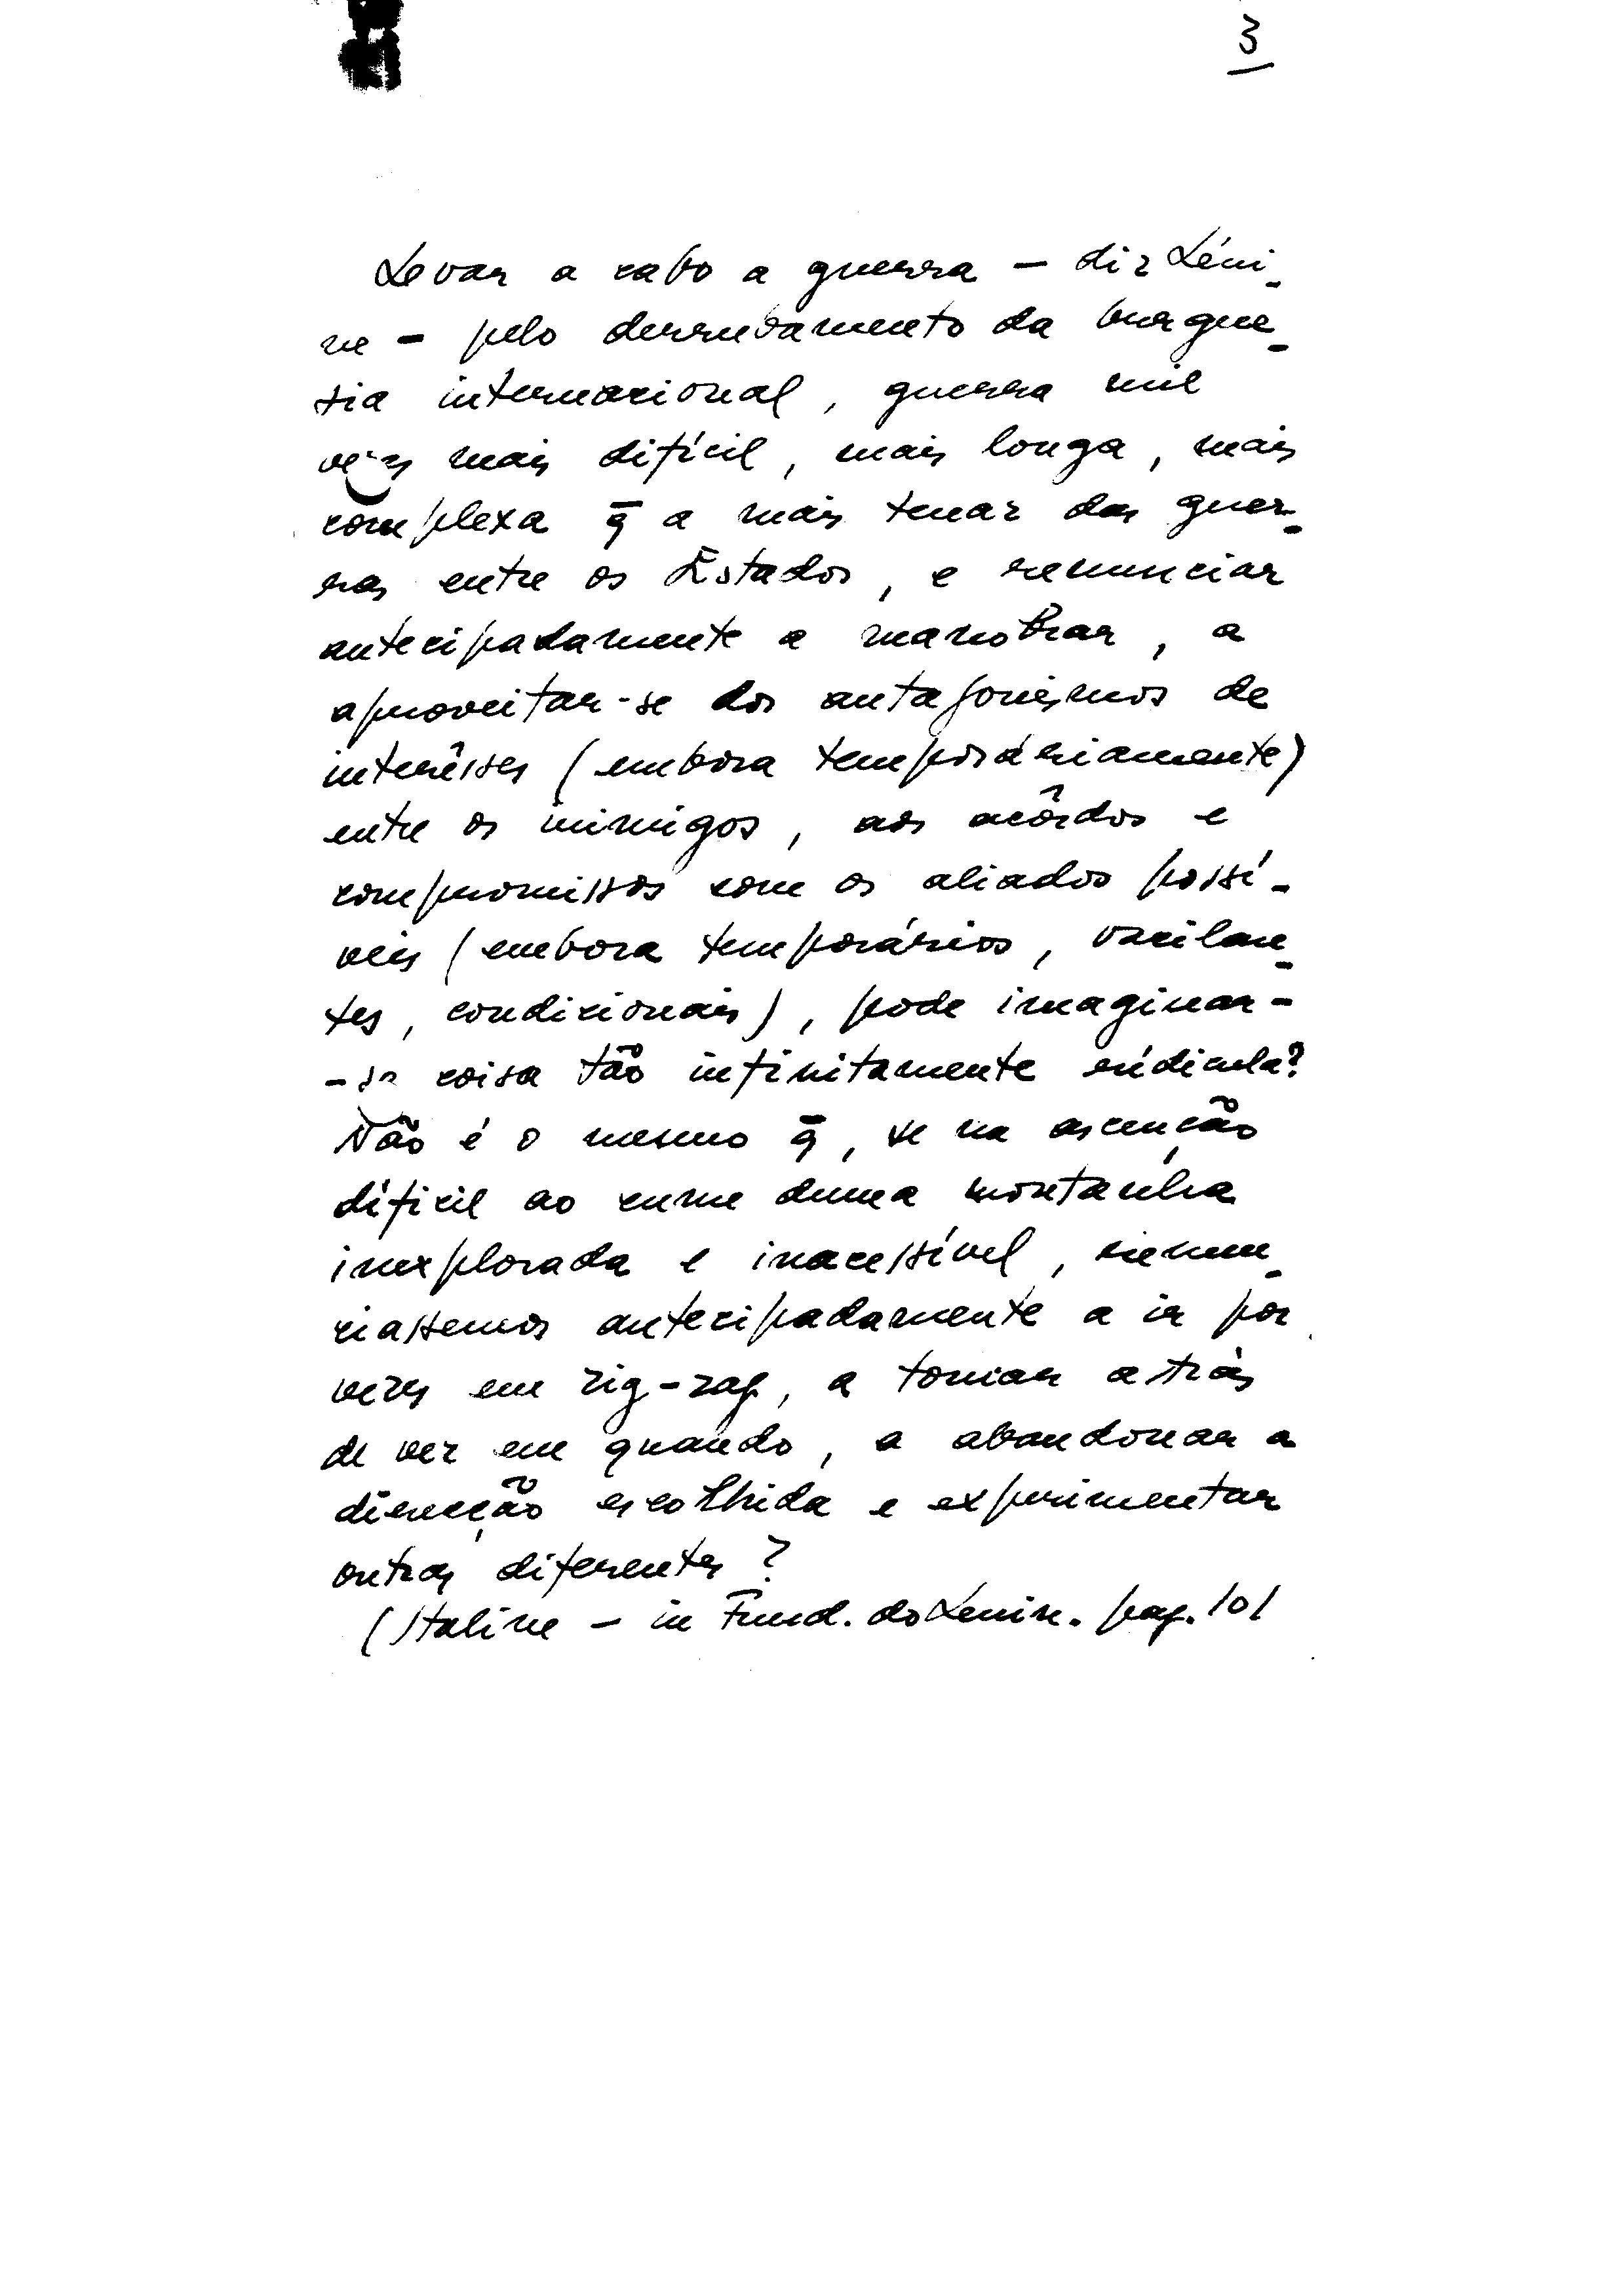 3
Levar a cabo a guerra — diz Léni-
ne — pelo derrubamento da burgue-
sia internacional, guerra mil
vezes mais difícil, mais longa, mais
complexa q̄ a mais tenaz das guer-
ras entre os Estados, e renunciar
antecipadamente a manobrar, a
aproveitar-se dos antagonismos de
interêsses (embora temporáriamente)
entre os inimigos, aos acôrdos e
compromissos com os aliados possí-
veis (embora temporários, vacilan-
tes, condicionais), pode imaginar-
-se coisa tão infinitamente rídicula?
Não é o mesmo q̄, se na ascenção
díficil ao cume duma montanha
inexplorada e inacessível, renun-
ciassemos antecipadamente a ir por
vezes em zig-zag, a tornar atrás
de vez em quando, a abandonar a
direcção escolhida e experimentar
outras diferentes?
(Staline — in Fund. do Lenin. pag. 101